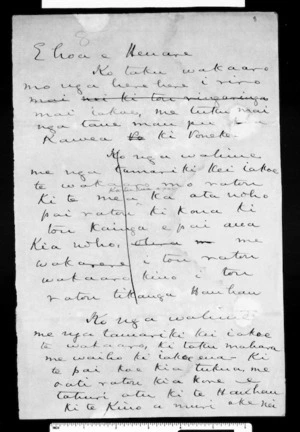 E hoa e Henare
Ko taku wakaaro
mo nga herehere i riro
mai nei ki tou ringaringa
mai i akoe, me tuku mai
nga tane mau pu
Kawea ki Poneke
Ko nga wahine
me nga tamariki kei iakoe
te wakaaro mo ratou
Ki te mea ka ata noho
pai ratou ki kona ki
tou kainga e pai ana
Kia noho, me
i tou ratou
wakaaro kino i tou
ratou tikanga Hauhau
Ko nga wahine
me nga tamariki kei iakoe
te wakaaro, ki taku mahara
me waiho ki iakoe ena Ki
te pai koe kia tukua, me
oati ratou kia kore e
tahuri atu ki te Hauhau
ki te Kino a muri ake nei